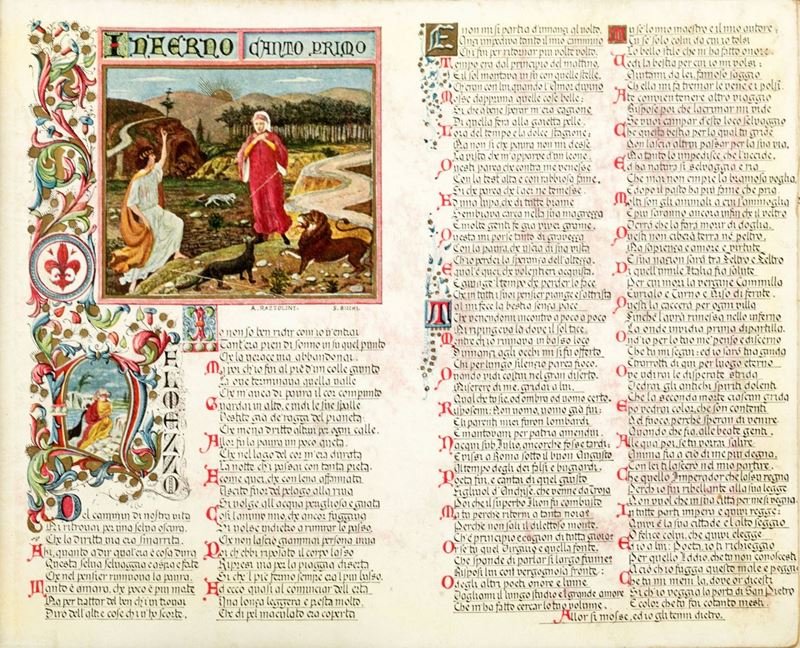 INFERNO CANTO PRIMO
A. RAZZOLINI.
NEL MEZZO
Del cammin di nostra vita
Mi ritrovai per una selva oscura,
Chè la diritta via era smarrita.
Ahi, quanto a dir qual era è cosa dura
Questa selva selvaggia e aspra e forte
Che nel pensier rinnuova la paura.
Tanto è amara, che poco è più morte
Ma per trattar del ben ch'i vi trovai
Dirò dell'altre cose ch'i v'ho scorte.
I non so ben ridir com'io v'entrai
Tant'era pien di sonno in su quel punto
Che la verace via abbandonai.
Ma poi ch'io fui al piè d'un colle giunto
Là ove terminava quella valle
Che m'avea di paura il cor compunto
Guardai in alto, e vidi le sue spalle
Vestite già de' raggi del pianeta
Che mena dritto altrui per ogni calle.
Allor fu la paura un poco queta
Che nel lago del cor m'era durata
La notte ch'i passai con tanta pieta.
E come quei, che con lena affannata
Uscito fuor del pelago alla riva
Si volge all'acqua perigliosa e guata
Così l'animo mio, che ancor fuggiva
Si volse indietro a rimirar lo passo,
Che non lasciò giammai persona viva.
Poi ch'ebbi riposato il corpo lasso
Ripresi via per la piaggia diserta
Sì che 'l piè fermo sempre era 'l più basso.
Ed ecco quasi al cominciar dell'erta
Una lonza leggera e presta molto
Che di pel maculato era coperta
E non mi si partia d'innanzi al volto,
Anzi impediva tanto il mio cammino
Ch'i fui per ritornar più volte volto.
Tempo era dal principio del mattino,
E il sol montava in su con quelle stelle,
Ch'eran con lui, quando l'Amor divino
Mosse dapprima quelle cose belle;
Sì che a bene sperar m'era cagione
Di quella fera alla gaietta pelle.
L'ora del tempo e la dolce stagione:
Ma non sì che paura non mi desse
La vista che m'apparve d'un leone.
Questi parea che contra me venesse
Con la test'alta e con rabbiosa fame,
Sì che parea che l'aer ne temesse:
Ed una lupa, che di tutte brame
Sembiava carca nella sua magrezza
E molte genti fe' già viver grame.
Questa mi porse tanto di gravezza
Con la paura, che uscia di sua vista
Ch'io perdei la speranza dell'altezza.
E quale è quei che volentieri acquista,
E giunge 'l tempo che perder lo face
Che in tutti i suoi pensier piange e s'attrista
Tal mi fece la bestia senza pace
Che venendomi incontro a poco a poco
Mi ripingeva là dove il sol tace.
Mentre ch'io rovinava in basso loco
Dinnanzi agli occhi mi si fu offerto
Chi per lungo silenzio parea fioco.
Quando vidi costui nel gran diserto.
Miserere di me, gridai a lui.
Qual che tu sie, od ombra od uomo certo.
Risposemi: Non uomo, uomo già fui;
E li parenti miei furon lombardi
E mantovani per patria amendui.
Nacqui sub Julio ancorchè fosse tardi:
E vissi a Roma sotto il buon Augusto
Al tempo degli dei falsi e bugiardi.
Poeta fui e cantai di quel giusto
Figliuol d'Anchise, che venne da Troia
Poi che il superbo Ilion fu combusto
Ma tu perchè ritorni a tanta noia?
Perchè non sali il dilettoso monte
Ch'è principio e cagion di tutta gioia?
Or se' tu quel Virgilio e quella fonte,
Che spande di parlar sì largo fiume?
Risposi lui con vergognosa fronte:
O degli altri poeti onore e lume
Vagliami il lungo studio e il grande amore
Che m'ha fatto cercar lo tuo volume.
Tu se' lo mio maestro e il mio autore:
Tu se' solo colui da cui io tolsi
Lo bello stile che m'ha fatto onore
Vedi la bestia per cui io mi volsi:
Aiutami da lei, famoso saggio
Ch'ella mi fa tremar le vene e i polsi.
A te convien tenere altro viaggio
Rispose poi che lacrimar mi vide
Se vuoi campar d'esto loco selvaggio
Chè questa bestia per la qual tu gride
Non lascia altrui passar per la sua via,
Ma tanto lo impedisce che l'uccide.
Ed ha natura sì malvagia e ria,
Che mai non empie la bramosa voglia,
E dopo il pasto ha più fame che pria.
Molti son gli animali a cui s'ammoglia
E più saranno ancora infin che il veltro
Verrà che la farà morir di doglia.
Questi non ciberà terra nè peltro,
Ma sapienza e amore e virtute,
E sua nazion sarà tra Feltro e Feltro
Di quell'umile Italia fia salute
Per cui morì la vergine Cammilla
Eurialo e Turno e Niso di ferute.
Questi la caccerà per ogni villa
Finchè l'avrà rimessa nello inferno
Là onde invidia prima dipartilla.
Ond'io per lo tuo me' penso e discerno
Che tu mi segui: ed io sarò tua guida
E trarrotti di qui per luogo eterno
Ove udirai le disperate strida
Vedrai gli antichi spiriti dolenti
Che la seconda morte ciascun grida
E poi vedrai color, che son contenti
Nel fuoco, perchè speran di venire
Quando che fia, alle beate genti
Alle qua' poi se tu vorrai salire,
Anima fia a ciò di me più degna,
Con lei ti lascerò nel mio partire,
Chè quello Imperador che lassù regna
Perch'io fui ribellante alla sua legge
Non vuol che in sua città per me si vegna,
In tutte parti impera e quivi regge:
Quivi è la sua cittade e l'alto seggio
O felice colui, che quivi elegge
Ed io a lui: Poeta, io ti richieggio
Per quello Iddio, che tu non conoscesti
Acciò ch'io fugga questo male e peggio
Che tu mi meni là, dove or dicesti
Sì ch'io veggia la porta di San Pietro
E color che tu fai cotanto mesti.
Allor si mosse, ed io gli tenni dietro.